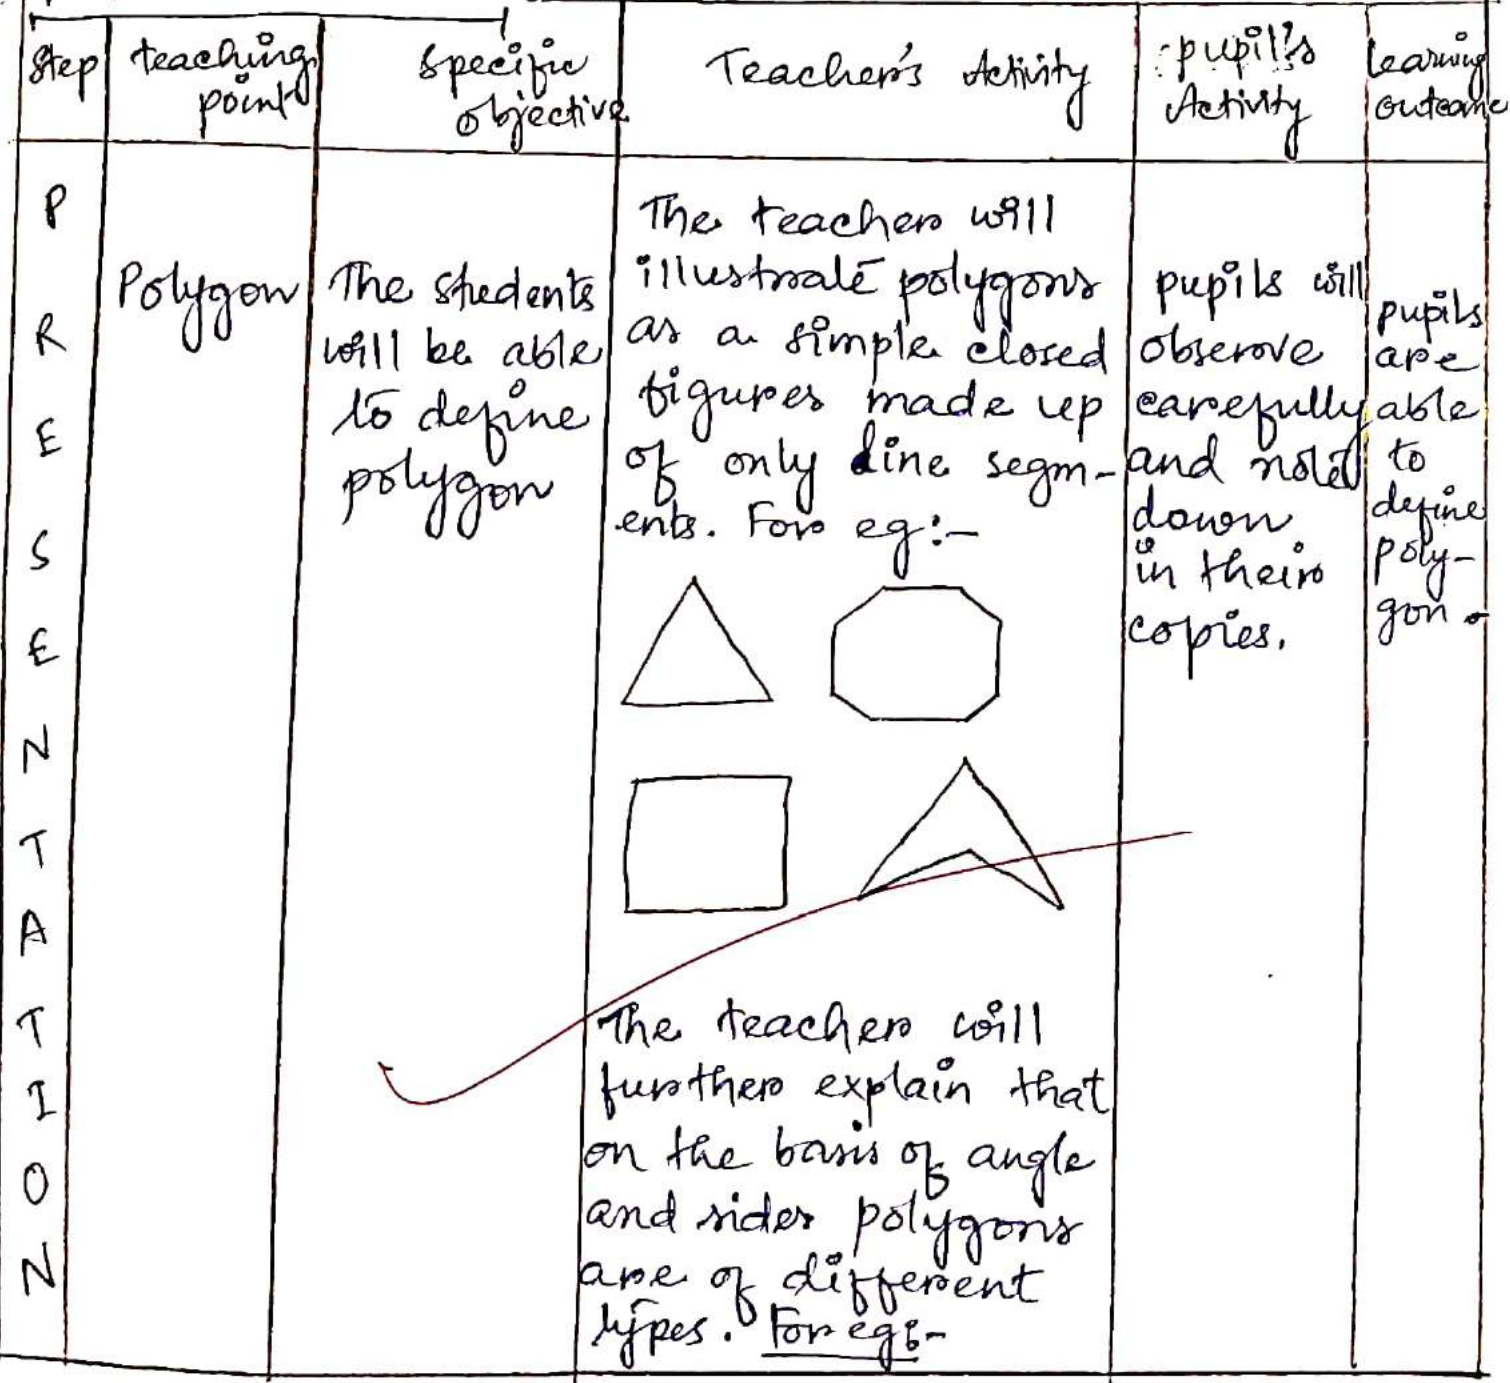 Step
teaching
point
Specific
objective
Teacher's Activity
pupil's
Activity
Learning
outcome
PRESENTATION
Polygon
The students
will be able
to define
polygon
The teacher will
illustrate polygons
as a simple closed
figures made up
of only line segm-
ents. For eg:-
The teacher will
further explain that
on the basis of angle
and sides polygons
are of different
types. For eg:-
pupils will
observe
carefully
and noted
down
in their
copies.
pupils
are
able
to
define
poly-
gon.